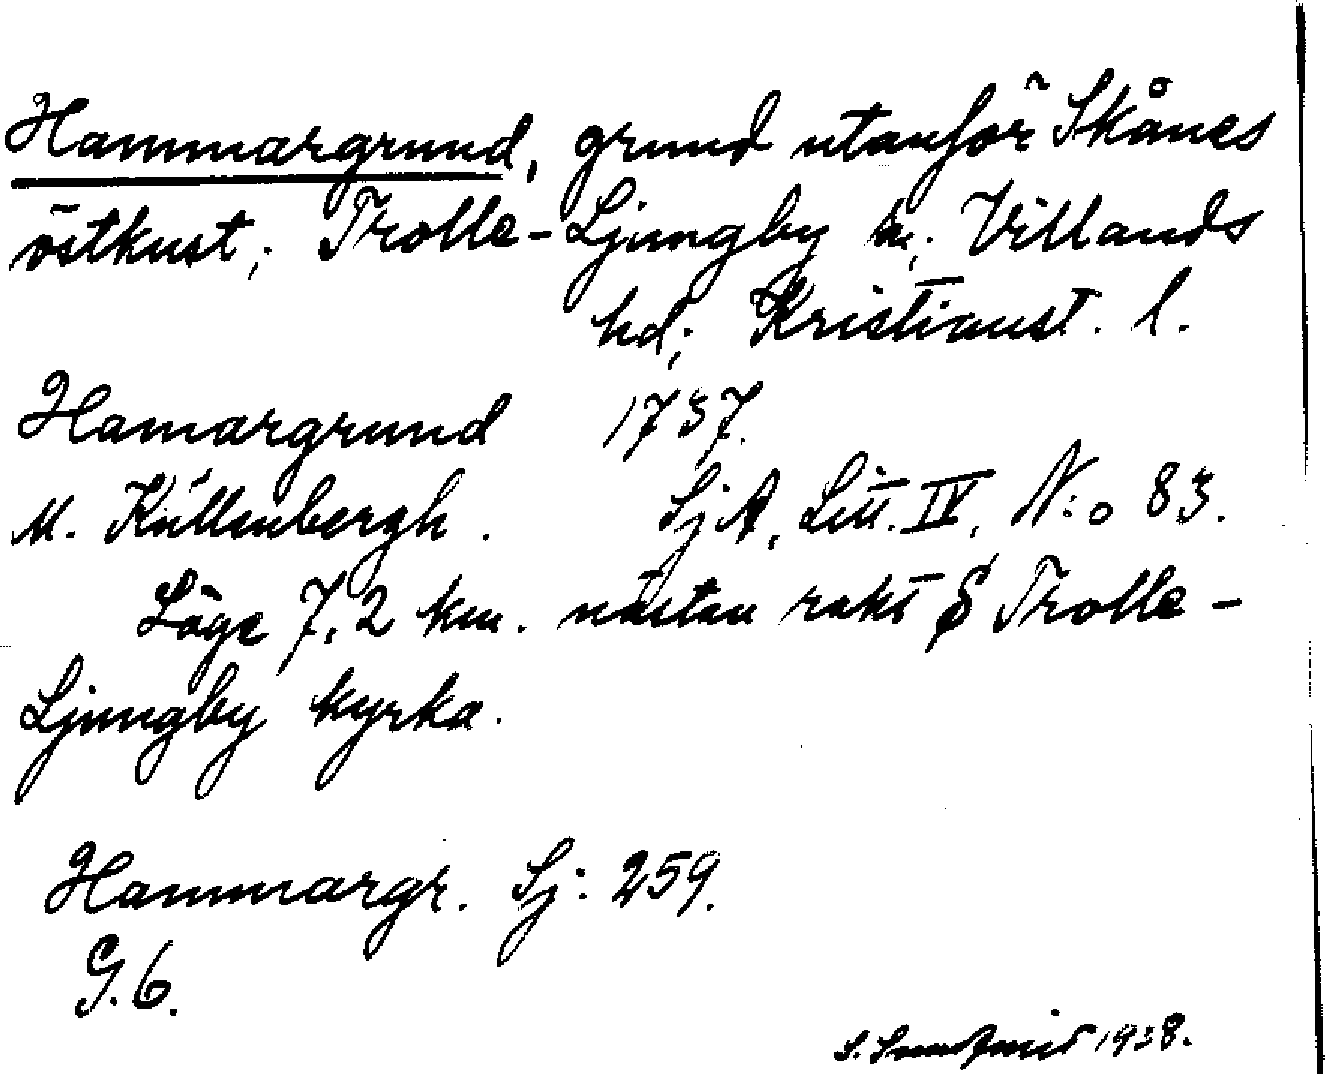 Hammargrund, grund utanför Skånes
östkust; Trolle-Ljungby sn; Villands
hd; Kristianst. l.
Hamargrund 1737.
M. Källenbergh. SjA, Litt. IV, N:o 83.
Läge 7,2 km. nästan rakt S Trolle-
Ljungby kyrka.
Hammargr. Sj: 259.
G. 6.
S. 1938.